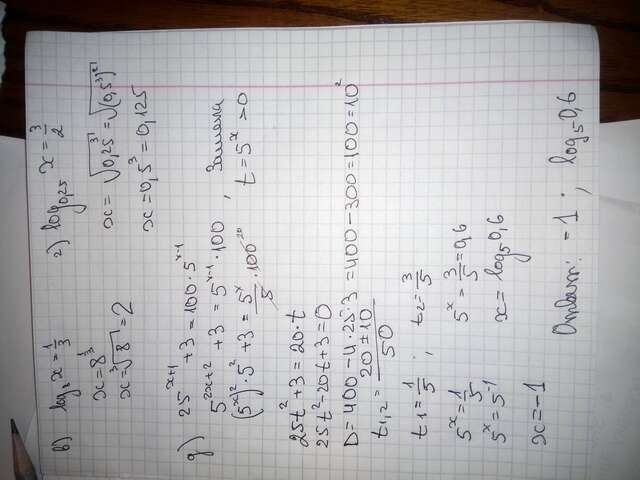 в) log₈ x = 1/3
x = 8^(1/3)
x = ∛8 = 2
г) log₀,₂₅ x = 3/2
x = √(0,25³) = √((0,5³)²)
x = 0,5³ = 0,125
д) 25^(x+1) + 3 = 100 · 5^(x-1)
5^(2x+2) + 3 = 5^(x-1) · 100 , Замена
(5^x)² · 5² + 3 = 5^x/5 · 100 20 t = 5^x > 0
25t² + 3 = 20 · t
25t² - 20t + 3 = 0
D = 400 - 4 · 25 · 3 = 400 - 300 = 100 = 10²
t₁,₂ = (20 ± 10)/50
t₁ = 1/5 ; t₂ = 3/5
5^x = 1/5 5^x = 3/5 = 0,6
5^x = 5^-1 x = log₅ 0,6
x = -1
Ответ: -1 ; log₅ 0,6